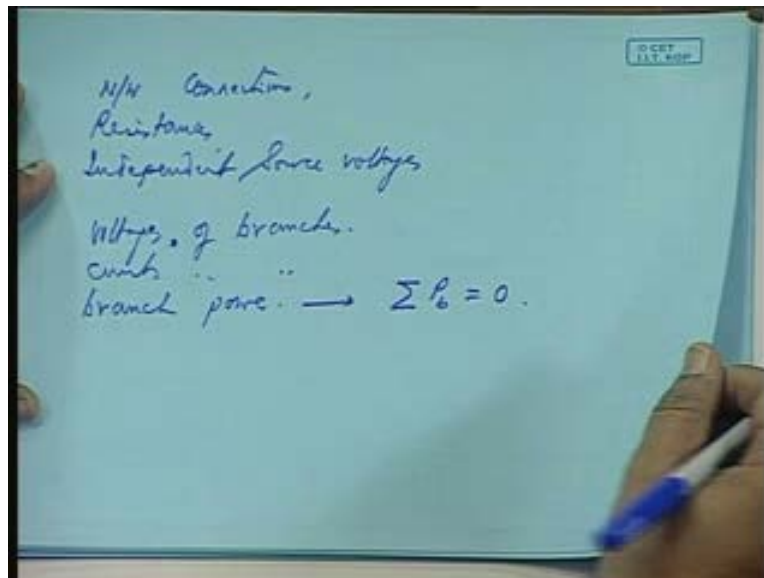 N/W Connections,
Resistances
Independent Source voltages
Voltages of branches.
currents " "
branch power. → Σ P_b = 0.
© CET
I.I.T. KGP